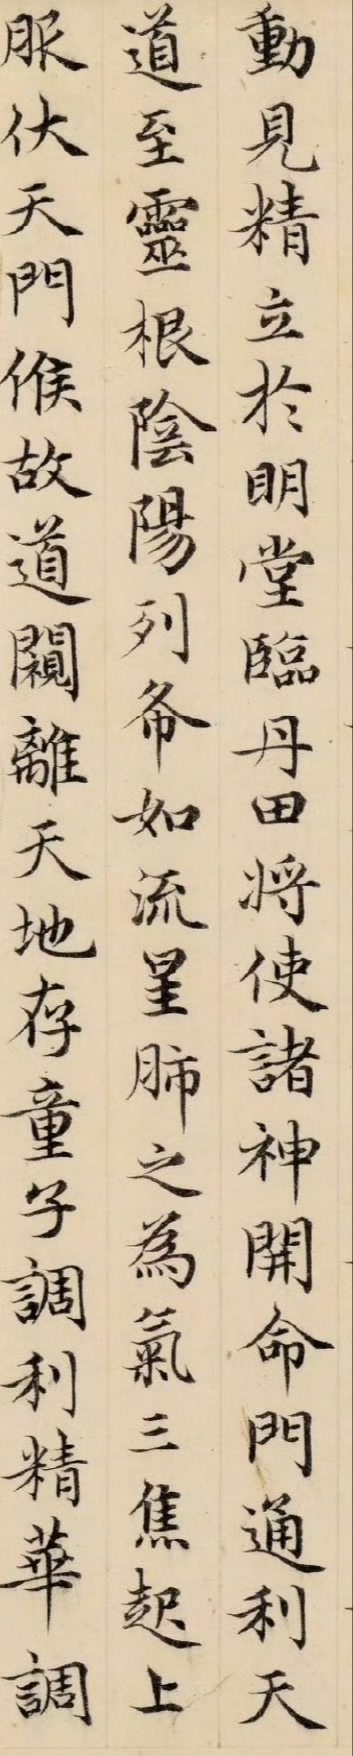 動見精立於明堂臨丹田將使諸神開命門通利天
道至靈根陰陽列布如流星肺之為氣三焦起上
服伏天門候故道闚離天地存童子調利精華調